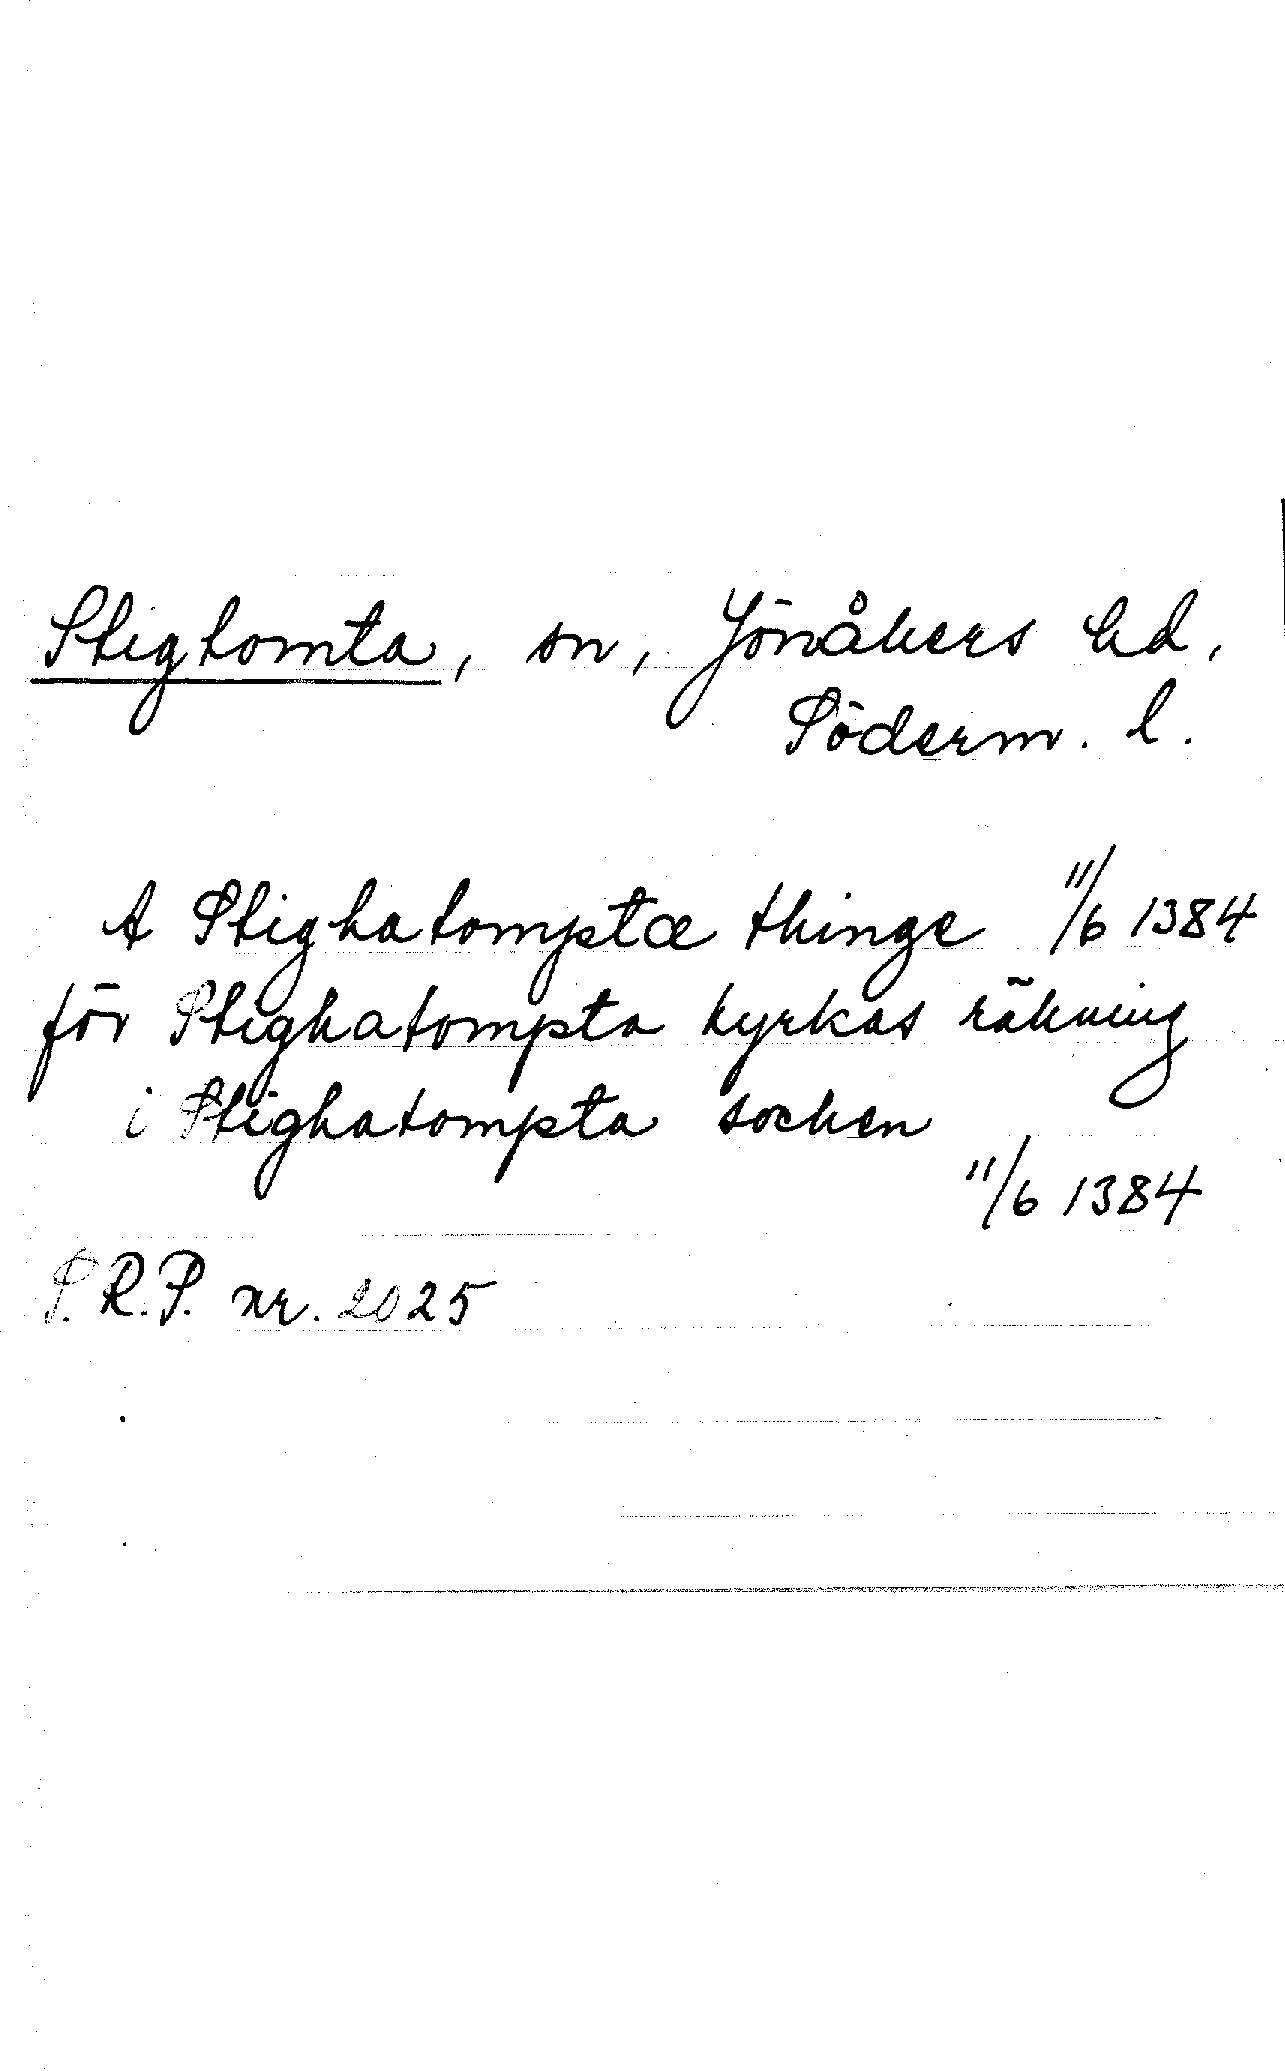 Stigtomta, sn, Jönåkers hd,
Söderm. l.
A Stighatomptæ thinge 11/6 1384
för Stighatompta kyrkas räkning
i Stighatompta socken
11/6 1384
S.R.P. nr. 2025